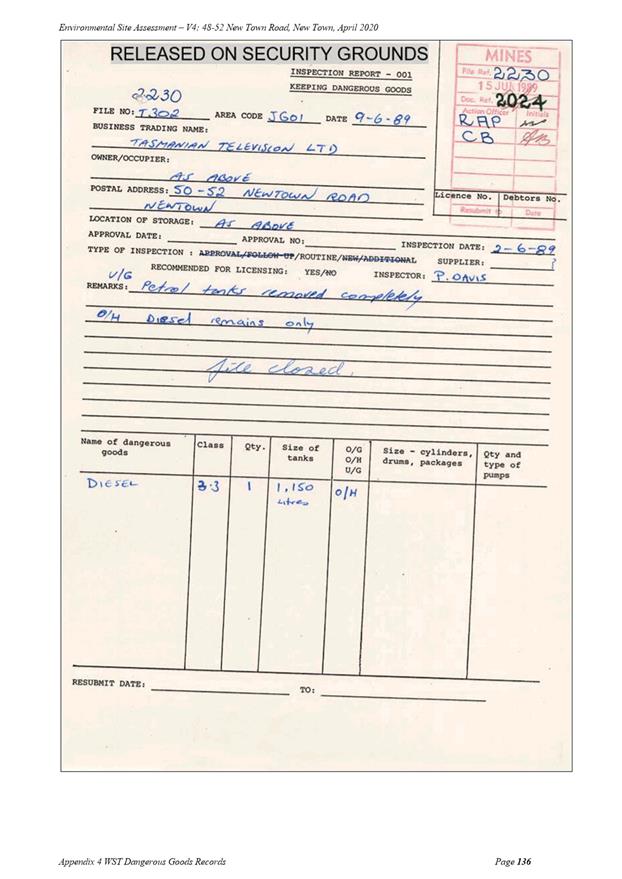 Environmental Site Assessment – V4: 48-52 New Town Road, New Town, April 2020
RELEASED ON SECURITY GROUNDS
INSPECTION REPORT - 001
KEEPING DANGEROUS GOODS
MINES
File Ref. 2230
15 JUL 1989
Doc. Ref. 2024
Action Officer Initials
RAP
CB
Licence No. Debtors No.
Resubmit to Date
2230
FILE NO: I302 AREA CODE JG01 DATE 9-6-89
BUSINESS TRADING NAME:
TASMANIAN TELEVISION LTD
OWNER/OCCUPIER:
AS ABOVE
POSTAL ADDRESS: 50-52 NEWTOWN ROAD
NEWTOWN
LOCATION OF STORAGE: AS ABOVE
APPROVAL DATE: APPROVAL NO: INSPECTION DATE: 2-6-89
TYPE OF INSPECTION : APPROVAL/FOLLOW-UP/ROUTINE/NEW/ADDITIONAL SUPPLIER: ?
RECOMMENDED FOR LICENSING: YES/NO INSPECTOR: P. DAVIS
U/G
REMARKS: Petrol tanks removed completely
O/H Diesel remains only
file closed.
Name of dangerous goods Class Qty. Size of tanks O/G O/H U/G Size - cylinders, drums, packages Qty and type of pumps
DIESEL 3.3 1 1,150 Litres O/H
RESUBMIT DATE: TO:
Appendix 4 WST Dangerous Goods Records Page 136